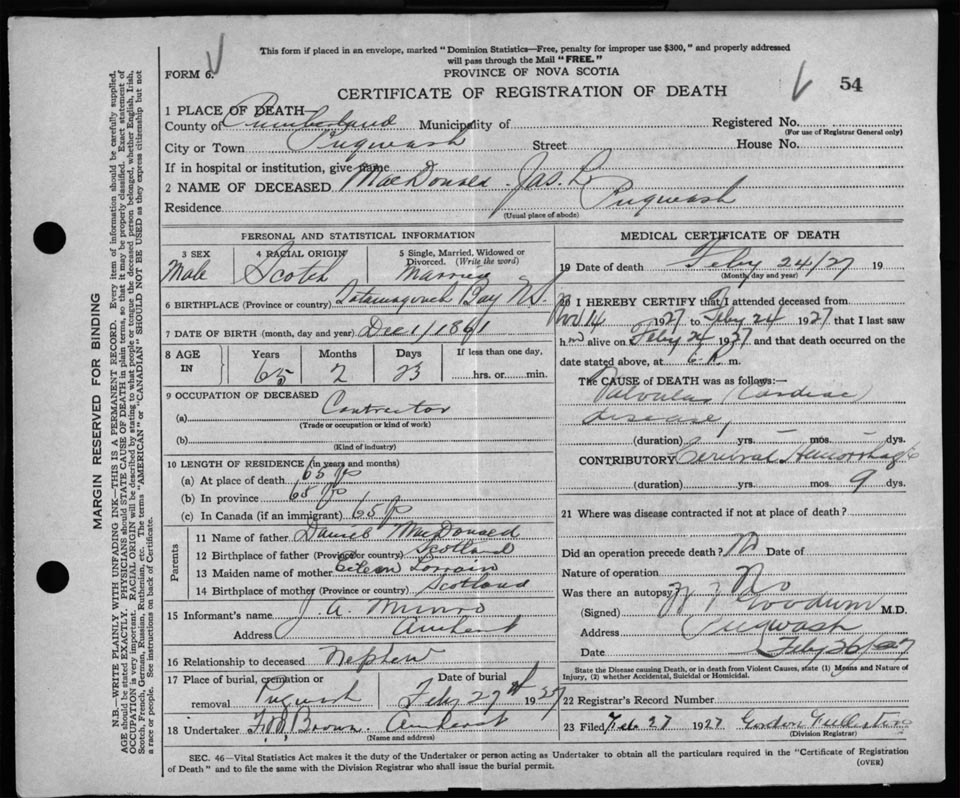 This form if placed in an envelope, marked "Dominion Statistics—Free, penalty for improper use $300," and properly addressed
will pass through the Mail "FREE."
FORM 6.
PROVINCE OF NOVA SCOTIA
CERTIFICATE OF REGISTRATION OF DEATH
54
1 PLACE OF DEATH
County of Cumberland Municipality of Registered No.
(For use of Registrar General only)
City or Town Pugwash Street House No.
If in hospital or institution, give name
2 NAME OF DECEASED MacDonald Jas. L.
Residence Pugwash
(Usual place of abode)
PERSONAL AND STATISTICAL INFORMATION
3 SEX 4 RACIAL ORIGIN 5 Single, Married, Widowed or
Divorced. (Write the word)
Male Scotch Married
6 BIRTHPLACE (Province or country) Tatamagouch Bay N.S.
7 DATE OF BIRTH (month, day and year) Dec 1/1861
8 AGE IN Years Months Days If less than one day,
65 2 23 hrs. or min.
9 OCCUPATION OF DECEASED
(a) Contractor
(Trade or occupation or kind of work)
(b)
(Kind of industry)
10 LENGTH OF RESIDENCE (in years and months)
(a) At place of death 65 yrs
(b) In province 65 yrs
(c) In Canada (if an immigrant) 65 yrs
Parents
11 Name of father Daniel MacDonald
12 Birthplace of father (Province or country) Scotland
13 Maiden name of mother Lorrain
14 Birthplace of mother (Province or country) Scotland
15 Informant's name J. A. Munro
Address Amherst
16 Relationship to deceased Nephew
17 Place of burial, cremation or
removal Pugwash
Date of burial
Feby 27th 1927
18 Undertaker Brown Amherst
(Name and address)
MEDICAL CERTIFICATE OF DEATH
19 Date of death Feby 24/27 19
(Month, day and year)
20 I HEREBY CERTIFY that I attended deceased from
14 1927 to Feby 24 1927 that I last saw
him alive on Feby 24 1927 and that death occurred on the
date stated above, at 6 P. m.
The CAUSE of DEATH was as follows:—
Valvular (Cardiac)
disease,
(duration) yrs. mos. dys.
CONTRIBUTORY Cerebral Hemorrhage
(duration) yrs. mos. 9 dys.
21 Where was disease contracted if not at place of death?
Did an operation precede death? No Date of
Nature of operation
Was there an autopsy? No
(Signed) Goodwin M.D.
Address Pugwash
Date Feby 26/27
State the Disease causing Death, or in death from Violent Causes, state (1) Means and Nature of
Injury, (2) whether Accidental, Suicidal or Homicidal.
22 Registrar's Record Number
23 Filed Feb 27 1927 Gordon
(Division Registrar)
SEC. 46—Vital Statistics Act makes it the duty of the Undertaker or person acting as Undertaker to obtain all the particulars required in the "Certificate of Registration
of Death" and to file the same with the Division Registrar who shall issue the burial permit.
(OVER)
MARGIN RESERVED FOR BINDING
N.B.—WRITE PLAINLY WITH UNFADING INK—THIS IS A PERMANENT RECORD. Every item of information should be carefully supplied.
AGE should be stated EXACTLY. PHYSICIANS should STATE CAUSE OF DEATH in plain terms, so that it may be properly classified. Exact statement of
OCCUPATION is very important. RACIAL ORIGIN will be described by stating to what people or tongue the deceased person belonged, whether English, Irish,
Scotch, French, German, Russian, Ruthenian, etc. The terms "AMERICAN" or "CANADIAN" SHOULD NOT BE USED as they express citizenship but not
a race or people. See instructions on back of Certificate.